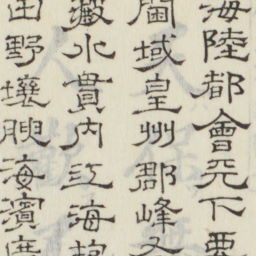 海陸都會天下要
閩域皇州郡峰又
激水貫內江海抱
田野壤腴海濱廣